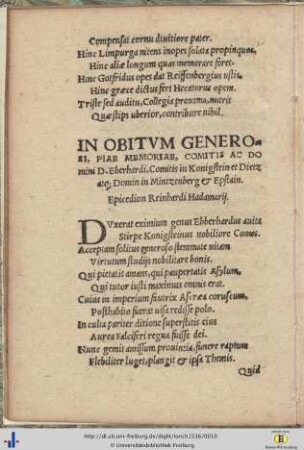 Compensat cornu diuitiore pater.
Hinc Limpurga nitens inopes solata propinquos,
Hinc aliæ longum quas memorare foret.
Hinc Gotfridus opes dat Reiffenbergius istis
Hinc græce dictus fert Hecatorus opem.
Triste sed auditu, Collegia proxima, nutrit
Quæ stips uberior, contribuere nihil.
IN OBITVM GENERO-
SI, PIAE MEMORIAE, COMITIS AC DO
mini D. Eberhardi, Comitis in Konigstein et Dietz
atq; Domin in Mintzenberg & Epstain.
Epicedion Reinhardi Hadamarij.
DVxerat eximium genus Ebberhardus auita
Stirpe Konigsteinus nobiliore Comes.
Acceptam solitus generoso stemmate uitam
Virtutum studijs nobilitare bonis.
Qui pietatis amans, qui paupertatis Asylum,
Qui tutor iusti maximus omnis erat.
Cuius in imperium fautrix Astræa coruscum,
Posthabito fuerat uisa redisse polo.
In culta pariter ditione superstitis eius
Aurea falciferi regna fuisse dei.
Nunc gemit amissum prouintia, funere raptum
Flebiliter luget, plangit & ipsa Themis.
Quid
http://dl.ub.uni-freiburg.de/diglit/lorich1536/0010
© Universitätsbibliothek Freiburg